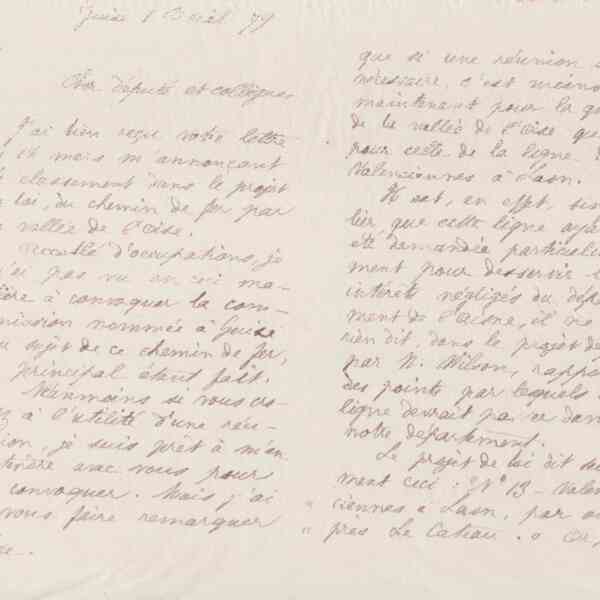 Guise 1er Avril 79
Cher député et collègue,
J'ai bien reçu votre lettre
mars m'annonçant
classement dans le projet
loi, du chemin de fer par
vallée de l'Oise.
Accablé d'occupations, je
n'ai pas vu en ceci ma-
tière à convoquer la com-
mission nommée à Guise
au sujet de ce chemin de fer,
principal étant fait.
Néanmoins si vous cro-
yez à l'utilité d'une réu-
nion, je suis prêt à m'en-
tendre avec vous pour
convoquer. Mais j'ai
vous faire remarquer
que si une réunion
nécessaire, c'est moins
maintenant pour la
de la vallée de l'Oise que
pour celle de la ligne
Valenciennes à Laon.
Il est, en effet,
lier, que cette ligne
été demandée particuliè
ment pour desservir
intérêts négligés du dépar
ment de l'Aisne, il ne
rien dit, dans le projet de
par M. Wilson,
des points par lesquels
ligne devrait passer dans
notre département.
Le projet de loi dit
ment ceci : "N° 13 - Valen
" ciennes à Laon, par ou
" près Le Cateau. " Or,